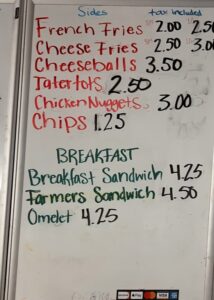 Sides tax included
French Fries SM 2.00 LG 2.50
Cheese Fries SM 2.50 LG 3.00
Cheeseballs 3.50
Tatertots 2.50
Chicken Nuggets 3.00
Chips 1.25
BREAKFAST
Breakfast Sandwich 4.25
Farmers Sandwich 4.50
Omelet 4.25
VISA